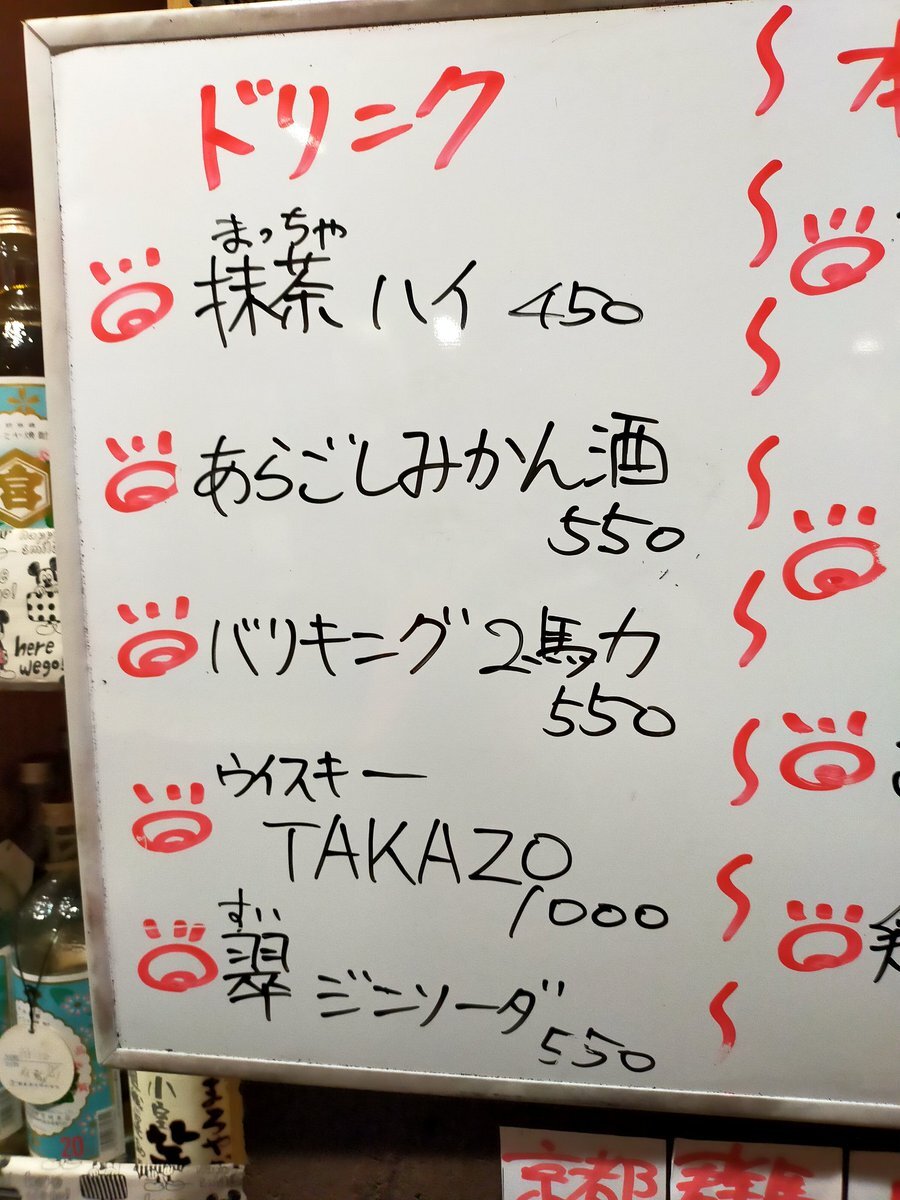 ドリンク
まっちゃ
抹茶ハイ 450
あらごしみかん酒
550
バリキング2馬力
550
ウイスキー
TAKAZO
1000
すい
翠 ジンソーダ
550
here
we go!
20
京都